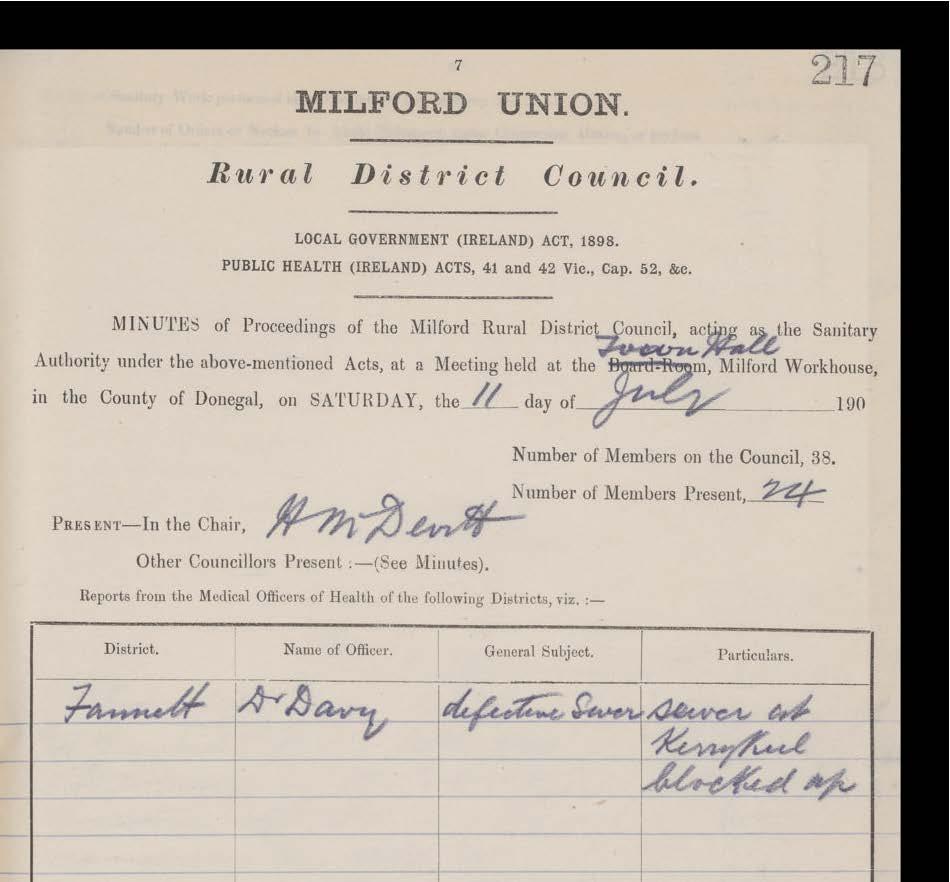 7
217
MILFORD UNION.
Rural District Council.
LOCAL GOVERNMENT (IRELAND) ACT, 1898.
PUBLIC HEALTH (IRELAND) ACTS, 41 and 42 Vic., Cap. 52, &c.
MINUTES of Proceedings of the Milford Rural District Council, acting as the Sanitary
Town Hall
Authority under the above-mentioned Acts, at a Meeting held at the Board-Room, Milford Workhouse,
in the County of Donegal, on SATURDAY, the 11 day of July 190
Number of Members on the Council, 38.
Number of Members Present, 24
PRESENT—In the Chair, H McDevitt
Other Councillors Present :—(See Minutes).
Reports from the Medical Officers of Health of the following Districts, viz. :—
District. Name of Officer. General Subject. Particulars.
Fannett Dr Davy defective Sewer sewer at
Kerrykeel
blocked up